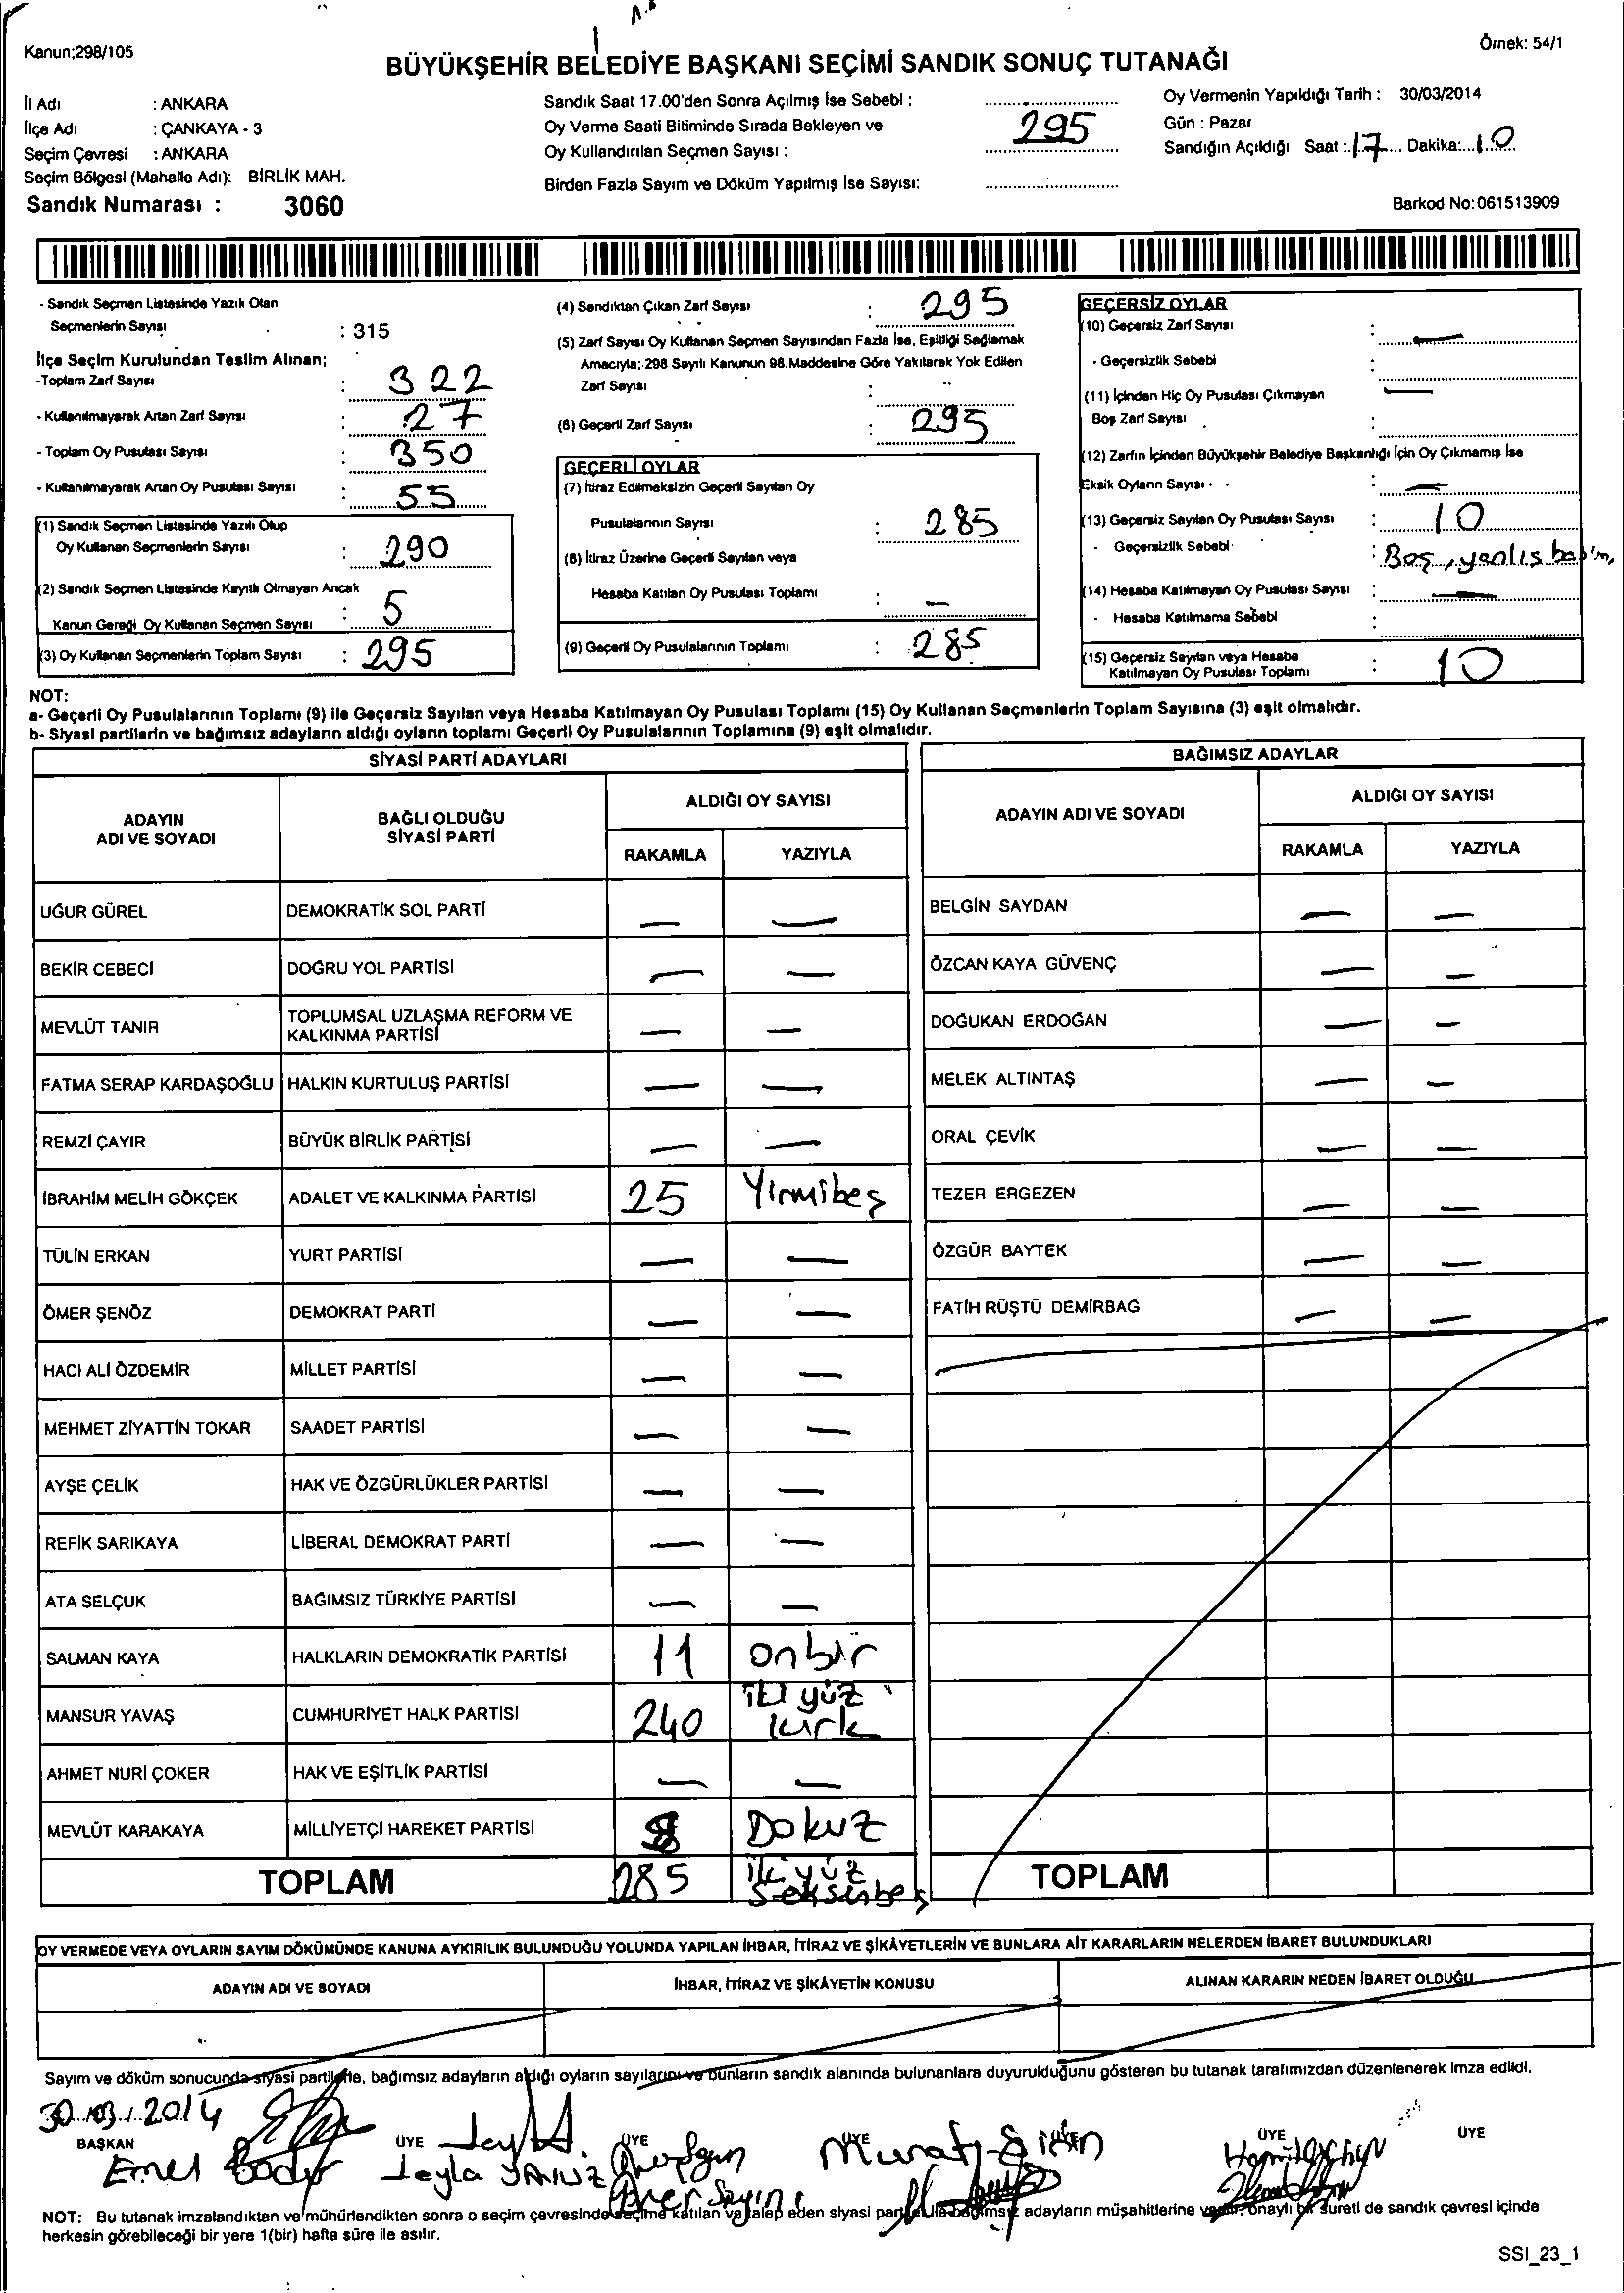 Kanun;298/105
BÜYÜKŞEHİR BELEDİYE BAŞKANI SEÇİMİ SANDIK SONUÇ TUTANAĞI
Örnek: 54/1
İl Adı : ANKARA
İlçe Adı : ÇANKAYA - 3
Seçim Çevresi : ANKARA
Seçim Bölgesi (Mahalle Adı): BİRLİK MAH.
Sandık Numarası : 3060
Sandık Saat 17.00'den Sonra Açılmış İse Sebebi :
Oy Verme Saati Bitiminde Sırada Bekleyen ve
Oy Kullandırılan Seçmen Sayısı : 295
Birden Fazla Sayım ve Döküm Yapılmış İse Sayısı:
Oy Vermenin Yapıldığı Tarih : 30/03/2014
Gün : Pazar
Sandığın Açıldığı Saat : 17 Dakika: 10
Barkod No:061513909
- Sandık Seçmen Listesinde Yazılı Olan
Seçmenlerin Sayısı : 315
İlçe Seçim Kurulundan Teslim Alınan;
-Toplam Zarf Sayısı : 322
- Kullanılmayarak Artan Zarf Sayısı : 27
- Toplam Oy Pusulası Sayısı : 350
- Kullanılmayarak Artan Oy Pusulası Sayısı : 55
(1) Sandık Seçmen Listesinde Yazılı Olup
Oy Kullanan Seçmenlerin Sayısı : 290
(2) Sandık Seçmen Listesinde Kayıtlı Olmayan Ancak
Kanun Gereği Oy Kullanan Seçmen Sayısı : 5
(3) Oy Kullanan Seçmenlerin Toplam Sayısı : 295
(4) Sandıktan Çıkan Zarf Sayısı : 295
(5) Zarf Sayısı Oy Kullanan Seçmen Sayısından Fazla İse, Eşitliği Sağlamak
Amacıyla; 298 Sayılı Kanunun 98.Maddesine Göre Yakılarak Yok Edilen
Zarf Sayısı :
(6) Geçerli Zarf Sayısı : 295
GEÇERLİ OYLAR
(7) İtiraz Edilmeksizin Geçerli Sayılan Oy
Pusulalarının Sayısı : 285
(8) İtiraz Üzerine Geçerli Sayılan veya
Hesaba Katılan Oy Pusulası Toplamı : —
(9) Geçerli Oy Pusulalarının Toplamı : 285
GEÇERSİZ OYLAR
(10) Geçersiz Zarf Sayısı : —
- Geçersizlik Sebebi :
(11) İçinden Hiç Oy Pusulası Çıkmayan : —
Boş Zarf Sayısı :
(12) Zarfın İçinden Büyükşehir Belediye Başkanlığı İçin Oy Çıkmamış İse
Eksik Oyların Sayısı : —
(13) Geçersiz Sayılan Oy Pusulası Sayısı : 10
- Geçersizlik Sebebi : Boş, yanlıs basım,
(14) Hesaba Katılmayan Oy Pusulası Sayısı : —
- Hesaba Katılmama Sebebi :
(15) Geçersiz Sayılan veya Hesaba
Katılmayan Oy Pusulası Toplamı : 10
NOT:
a- Geçerli Oy Pusulalarının Toplamı (9) ile Geçersiz Sayılan veya Hesaba Katılmayan Oy Pusulası Toplamı (15) Oy Kullanan Seçmenlerin Toplam Sayısına (3) eşit olmalıdır.
b- Siyasi partilerin ve bağımsız adayların aldığı oyların toplamı Geçerli Oy Pusulalarının Toplamına (9) eşit olmalıdır.
SİYASİ PARTİ ADAYLARI
ADAYIN ADI VE SOYADI BAĞLI OLDUĞU SİYASİ PARTİ ALDIĞI OY SAYISI
RAKAMLA YAZIYLA
UĞUR GÜREL DEMOKRATİK SOL PARTİ — —
BEKİR CEBECİ DOĞRU YOL PARTİSİ — —
MEVLÜT TANIR TOPLUMSAL UZLAŞMA REFORM VE KALKINMA PARTİSİ — —
FATMA SERAP KARDAŞOĞLU HALKIN KURTULUŞ PARTİSİ — —
REMZİ ÇAYIR BÜYÜK BİRLİK PARTİSİ — —
İBRAHİM MELİH GÖKÇEK ADALET VE KALKINMA PARTİSİ 25 Yirmibeş
TÜLİN ERKAN YURT PARTİSİ — —
ÖMER ŞENÖZ DEMOKRAT PARTİ — —
HACI ALİ ÖZDEMİR MİLLET PARTİSİ — —
MEHMET ZİYATTİN TOKAR SAADET PARTİSİ — —
AYŞE ÇELİK HAK VE ÖZGÜRLÜKLER PARTİSİ — —
REFİK SARIKAYA LİBERAL DEMOKRAT PARTİ — —
ATA SELÇUK BAĞIMSIZ TÜRKİYE PARTİSİ — —
SALMAN KAYA HALKLARIN DEMOKRATİK PARTİSİ 11 onbir
MANSUR YAVAŞ CUMHURİYET HALK PARTİSİ 240 iki yüz kırk
AHMET NURİ ÇOKER HAK VE EŞİTLİK PARTİSİ — —
MEVLÜT KARAKAYA MİLLİYETÇİ HAREKET PARTİSİ Dokuz
TOPLAM 285 iki yüz seksenbeş
BAĞIMSIZ ADAYLAR
ADAYIN ADI VE SOYADI ALDIĞI OY SAYISI
RAKAMLA YAZIYLA
BELGİN SAYDAN — —
ÖZCAN KAYA GÜVENÇ — —
DOĞUKAN ERDOĞAN — —
MELEK ALTINTAŞ — —
ORAL ÇEVİK — —
TEZER ERGEZEN — —
ÖZGÜR BAYTEK — —
FATİH RÜŞTÜ DEMİRBAĞ — —
TOPLAM
OY VERMEDE VEYA OYLARIN SAYIM DÖKÜMÜNDE KANUNA AYKIRILIK BULUNDUĞU YOLUNDA YAPILAN İHBAR, İTİRAZ VE ŞİKÂYETLERİN VE BUNLARA AİT KARARLARIN NELERDEN İBARET BULUNDUKLARI
ADAYIN ADI VE SOYADI İHBAR, İTİRAZ VE ŞİKÂYETİN KONUSU ALINAN KARARIN NEDEN İBARET OLDUĞU
Sayım ve döküm sonucunda siyasi partilerle, bağımsız adayların aldığı oyların sayılarını ve bunların sandık alanında bulunanlara duyurulduğunu gösteren bu tutanak tarafımızdan düzenlenerek imza edildi.
30.03.2014
BAŞKAN ÜYE ÜYE ÜYE ÜYE ÜYE
Emel Leyla
NOT: Bu tutanak imzalandıktan ve mühürlendikten sonra o seçim çevresinde seçime katılan ve talep eden siyasi parti ile bağımsız adayların müşahitlerine verilir, onaylı bir sureti de sandık çevresi içinde
herkesin görebileceği bir yere 1(bir) hafta süre ile asılır.
SSI_23_1